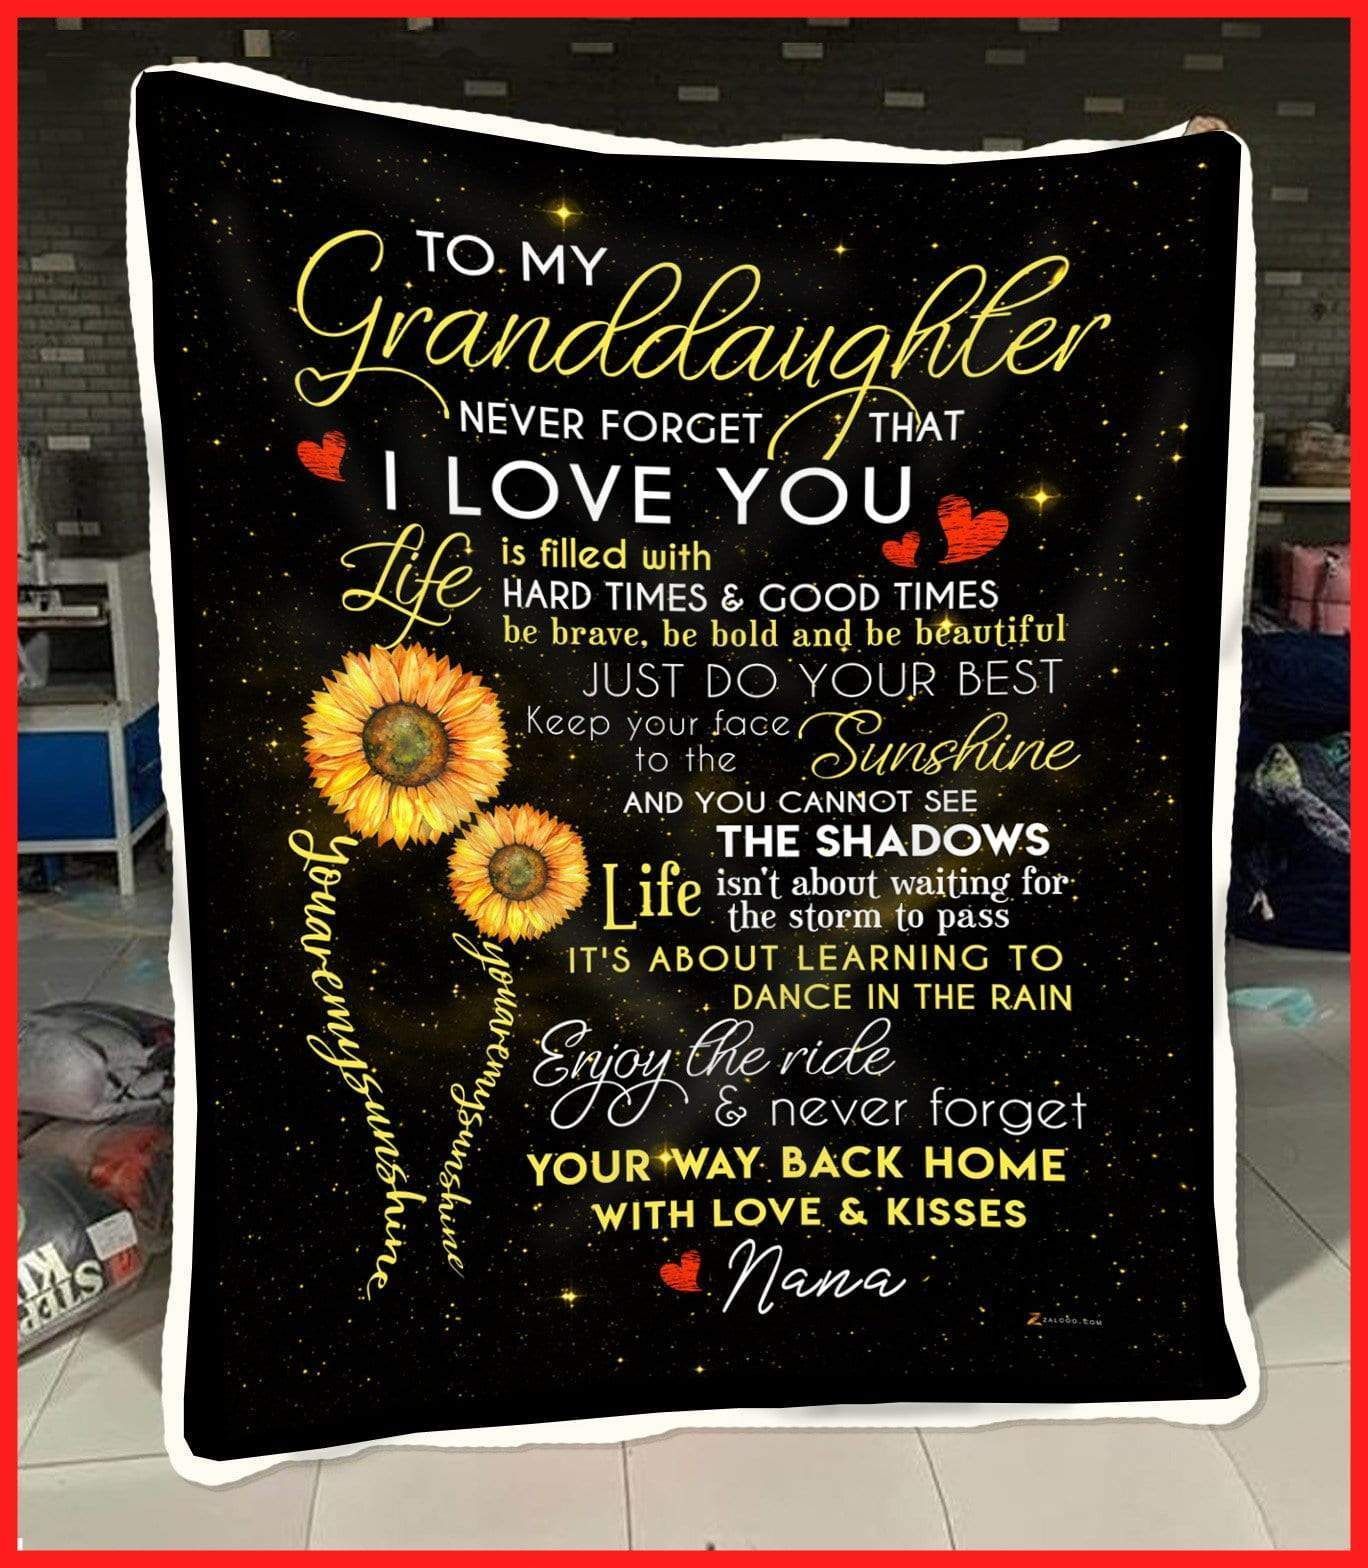 TO MY
Granddaughter
NEVER FORGET THAT
I LOVE YOU
Life is filled with
HARD TIMES & GOOD TIMES
be brave, be bold and be beautiful
JUST DO YOUR BEST
Keep your face
to the Sunshine
AND YOU CANNOT SEE
THE SHADOWS
Life isn't about waiting for
the storm to pass
IT'S ABOUT LEARNING TO
DANCE IN THE RAIN
Enjoy the ride
& never forget
YOUR WAY BACK HOME
WITH LOVE & KISSES
Nana
youaremysunshine
youaremysunshine
ZALOOO.COM